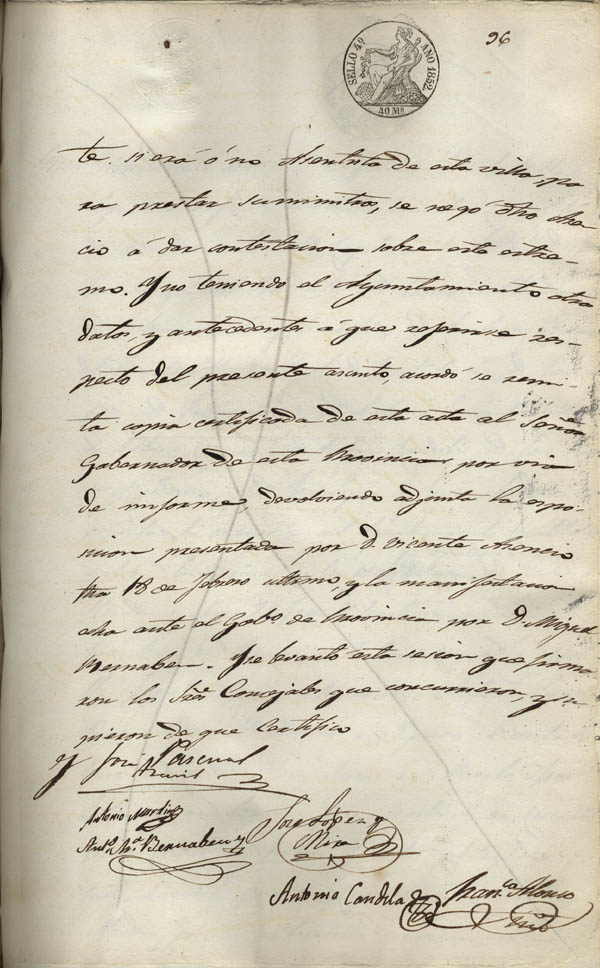 96
SELLO 4º AÑO 1852.
40 Ms
te si era ó no Asentista de esta villa pa
ra prestar suministros, se negó dho Asen
cio á dar contestacion sobre este estre-
mo. Y no teniendo el Ayuntamiento otros
datos, y antecedentes á que referirse res-
pecto del presente asunto, acordó se remi-
ta copia certificada de esta acta al Señor
Gobernador de esta Provincia por via
de informe, devolviendo adjunta la espo-
sicion presentada por D. Vicente Asencio
fha 18 de febrero ultimo, y la manifestacion
echa ante el Gobo de Provincia por D. Miguel
Bernabeu. Y se levantó esta sesion que firma
ron los Sres Concejales que concurrieron, y su
pieron de que certifico
y José Pascual
Antonio Martinez
José Lopez y
Anto Ma Bernabeu y
Mira
Antonio Candela
Franco Alonso